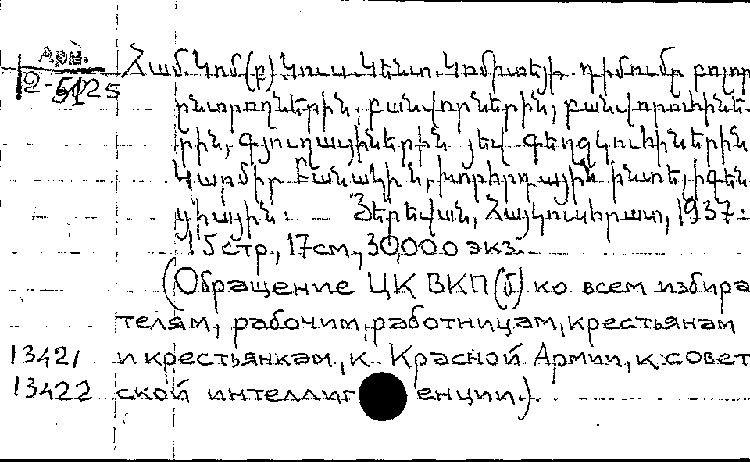 Арм.
2-5125
Համ. Կոմ(բ) Կուս. Կենտ. Կոմիտեյի դիմումը բոլոր
ընտրողներին, բանվորներին, բանվորուհինե-
րին, գյուղացիներին յեվ գեղջկուհիներին
Կարմիր Բանակին, խորհրդային ինտելիգեն-
ցիային: Յերեվան, Հայկուսհրատ, 1937.
15 стр., 17 см., 30000 экз.
(Обращение ЦК ВКП(б) ко всем избира
телям, рабочим, работницам, крестьянам
13421 и крестьянкам, к Красной Армии, к совет
13422 ской интеллигенции.)